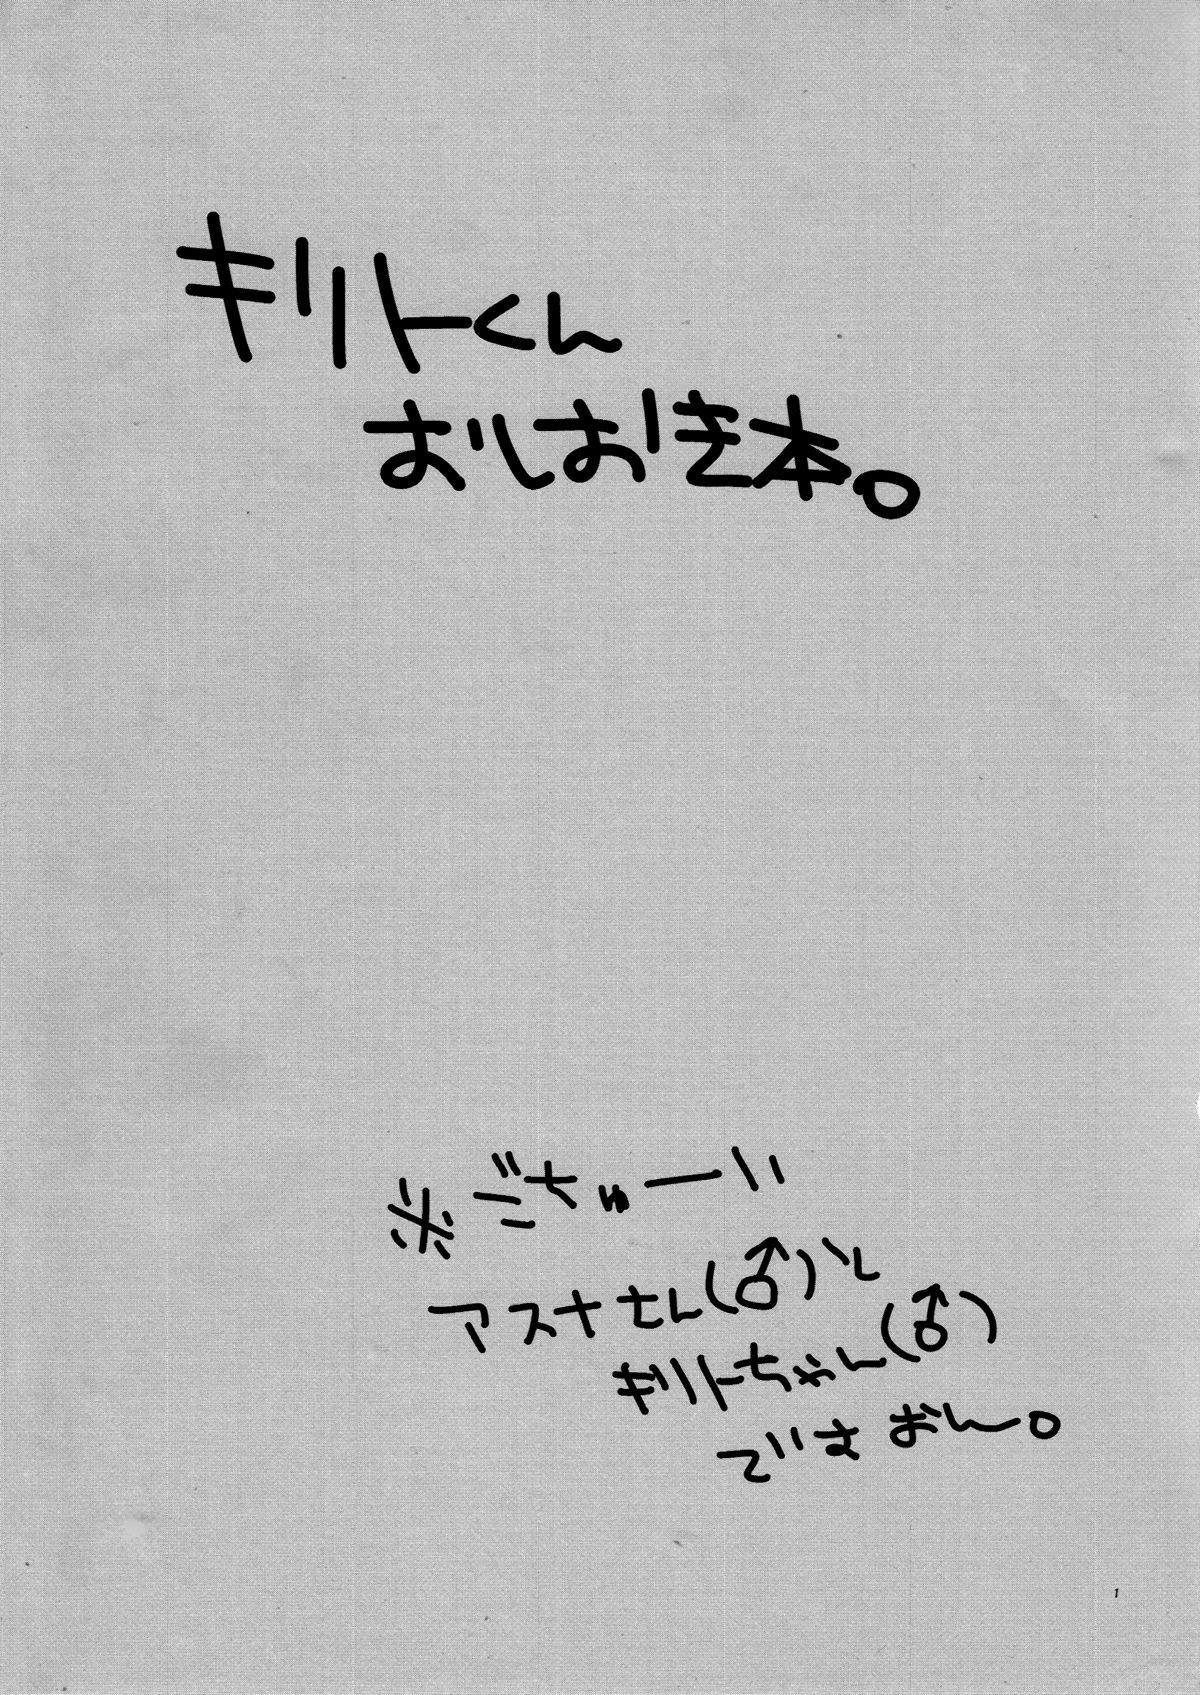 キリトくん
おしおき本。
※ごちゅーい
アスナさん(♂)と
キリトちゃん(♂)
でぃすおーん。
1